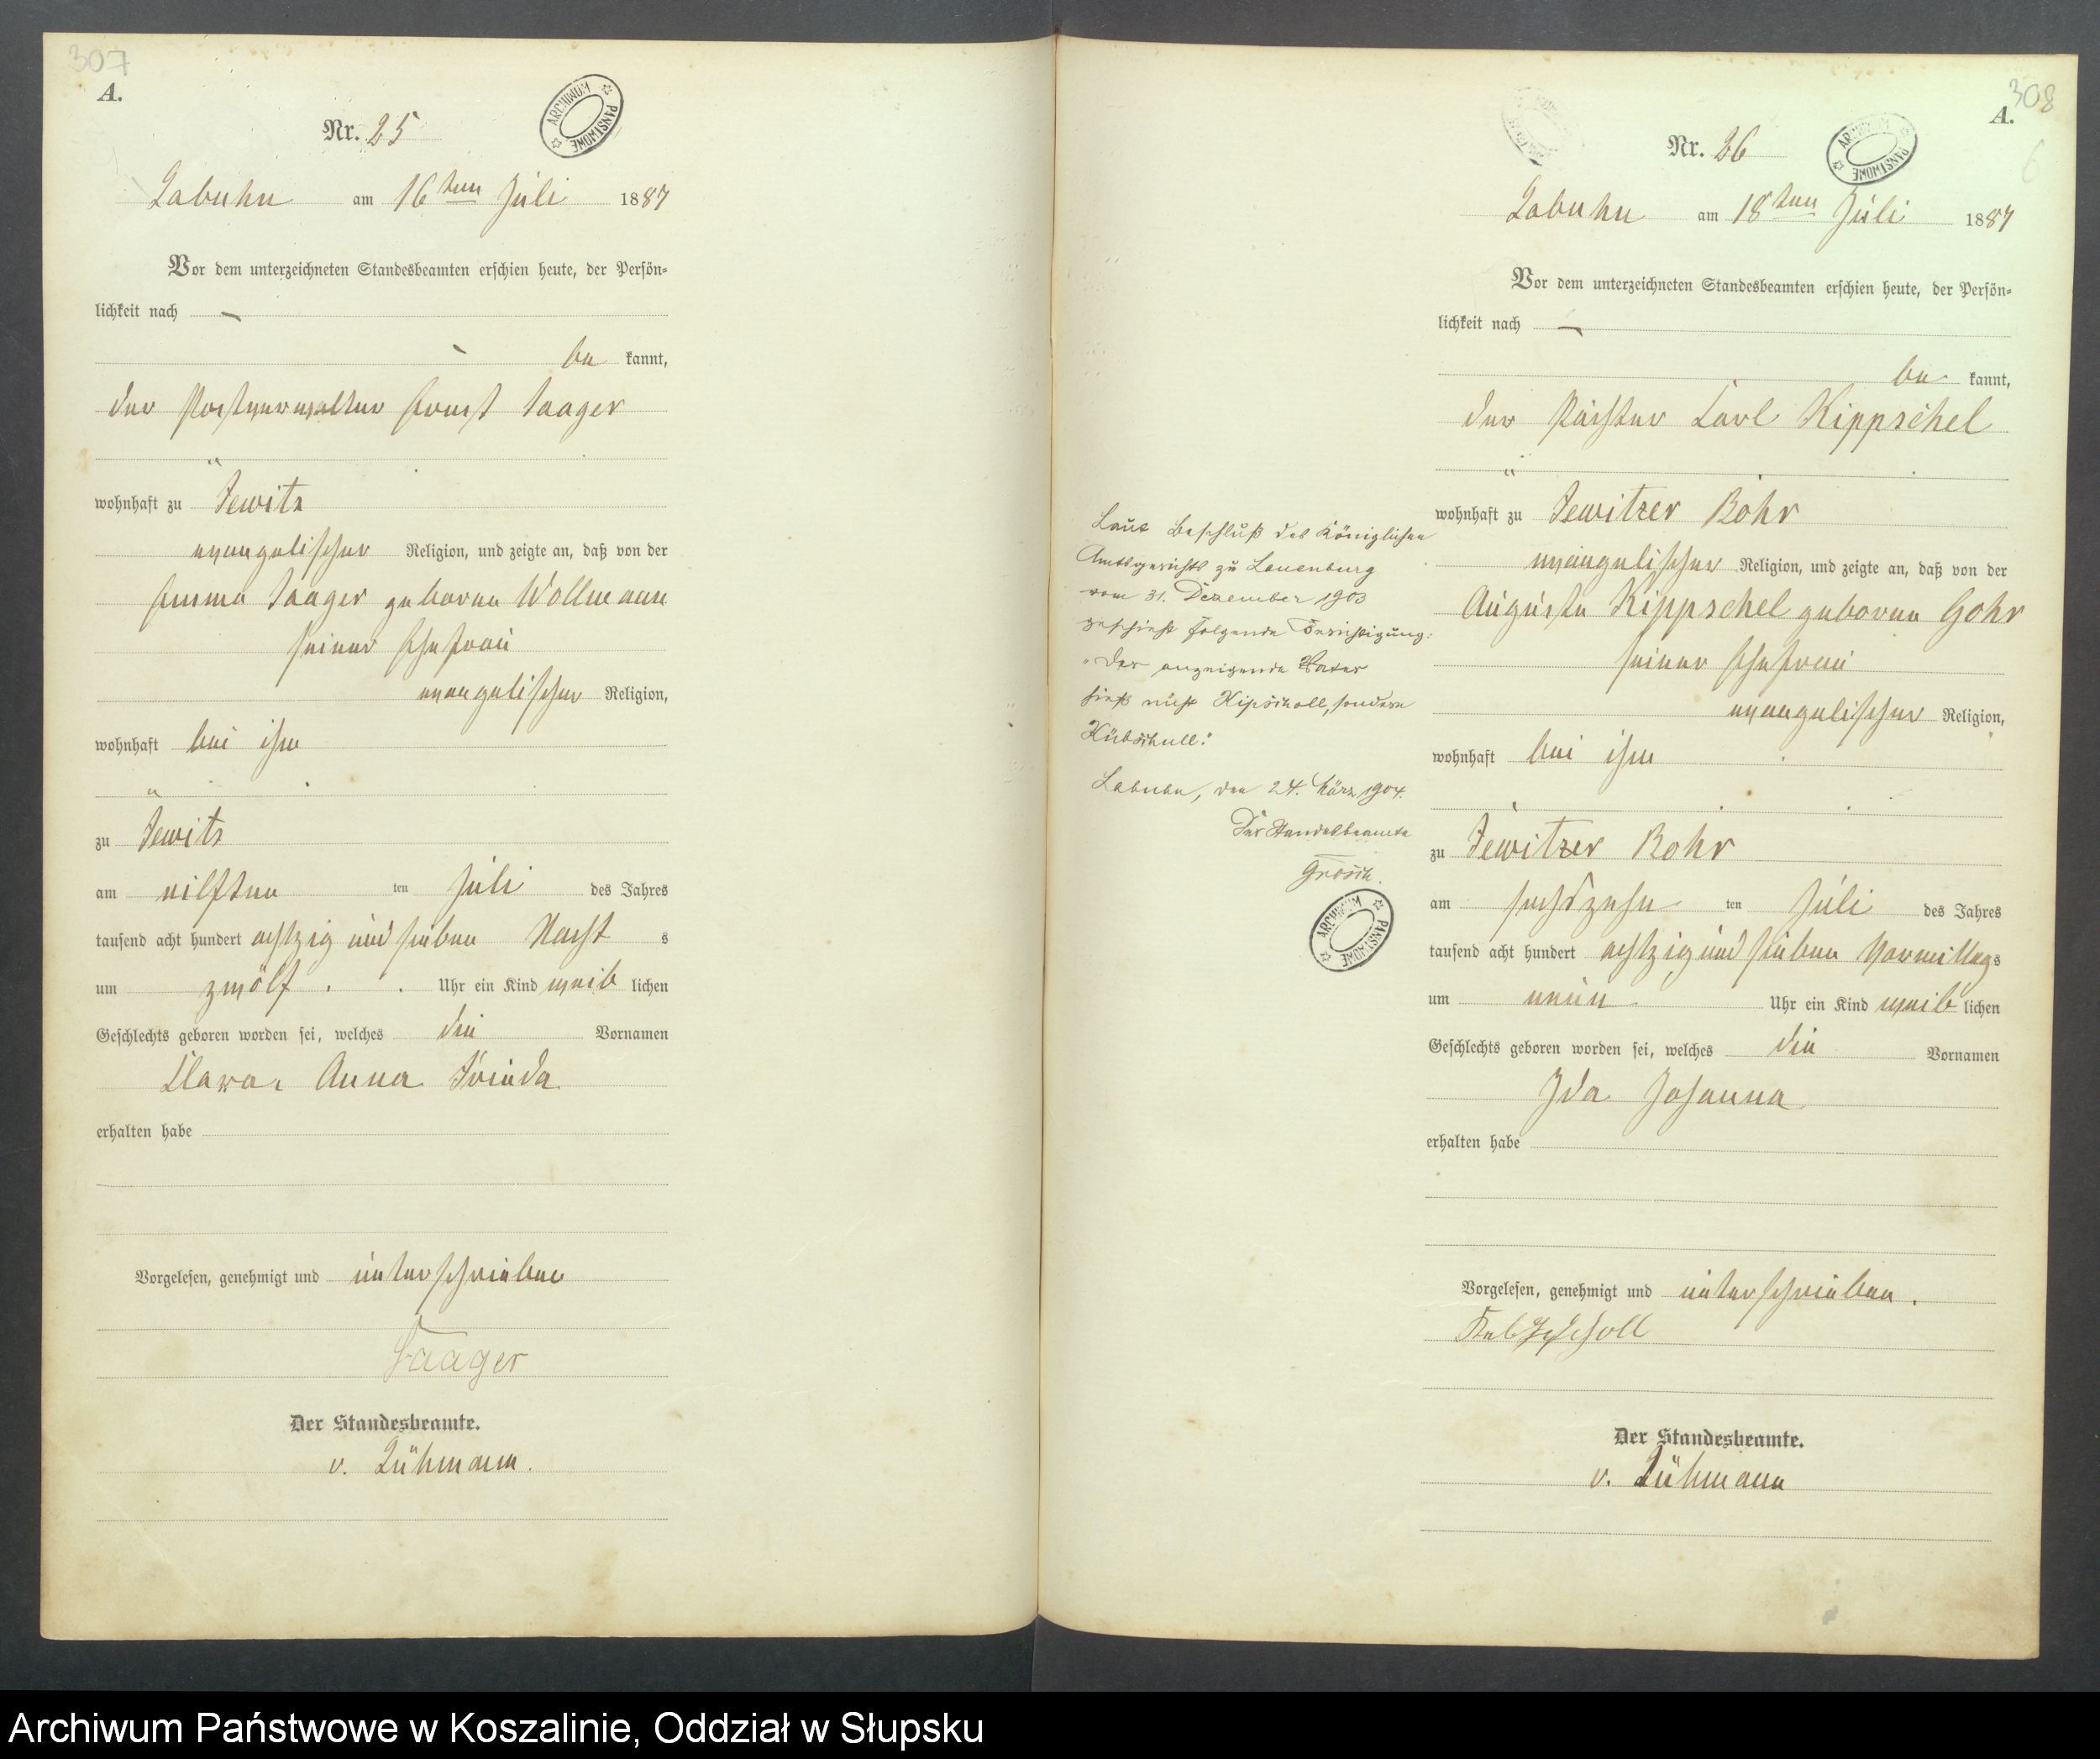 307
A.
Nr. 25
ARCHIWUM PAŃSTWOWE
Labuhn am 16ten Juli 1887
Vor dem unterzeichneten Standesbeamten erschien heute, der Persön-
lichkeit nach
be kannt,
der Postverwalter Ernst Saager
wohnhaft zu Jewitz
evangelischer Religion, und zeigte an, daß von der
Emma Saager geborene Wollmann
seiner Ehefrau
evangelischer Religion,
wohnhaft bei ihm
zu Jewitz
am eilften ten Juli des Jahres
tausend acht hundert achtzig und sieben Nacht s
um zwölf Uhr ein Kind weib lichen
Geschlechts geboren worden sei, welches die Vornamen
Clara Anna Frieda
erhalten habe
Vorgelesen, genehmigt und unterschrieben
Saager
Der Standesbeamte.
v. Lühmann.
308
A.
6
Nr. 26
ARCHIWUM PAŃSTWOWE
Labuhn am 18ten Juli 1887
Vor dem unterzeichneten Standesbeamten erschien heute, der Persön-
lichkeit nach
be kannt,
der Carl Kippschel
wohnhaft zu Jewitzer Bohr
evangelischer Religion, und zeigte an, daß von der
Auguste Kippschel geborene Gohr
seiner Ehefrau
evangelischer Religion,
wohnhaft bei ihm
zu Jewitzer Bohr
am sechszehn ten Juli des Jahres
tausend acht hundert achtzig und sieben Vormittags
um neun Uhr ein Kind weib lichen
Geschlechts geboren worden sei, welches die Vornamen
Ida Johanna
erhalten habe
Vorgelesen, genehmigt und unterschrieben.
Der Standesbeamte.
v. Lühmann
Laut Beschluß des Königlichen
Amtsgerichts zu Lauenburg
vom 31. Dezember 1903
geschieht folgende Berichtigung:
"Der anzeigende Vater
hieß nicht Kipscholl, sondern
Kübschull."
Labuhn, den 24. März 1904.
Der Standesbeamte
Grosch.
ARCHIWUM PAŃSTWOWE
Archiwum Państwowe w Koszalinie, Oddział w Słupsku